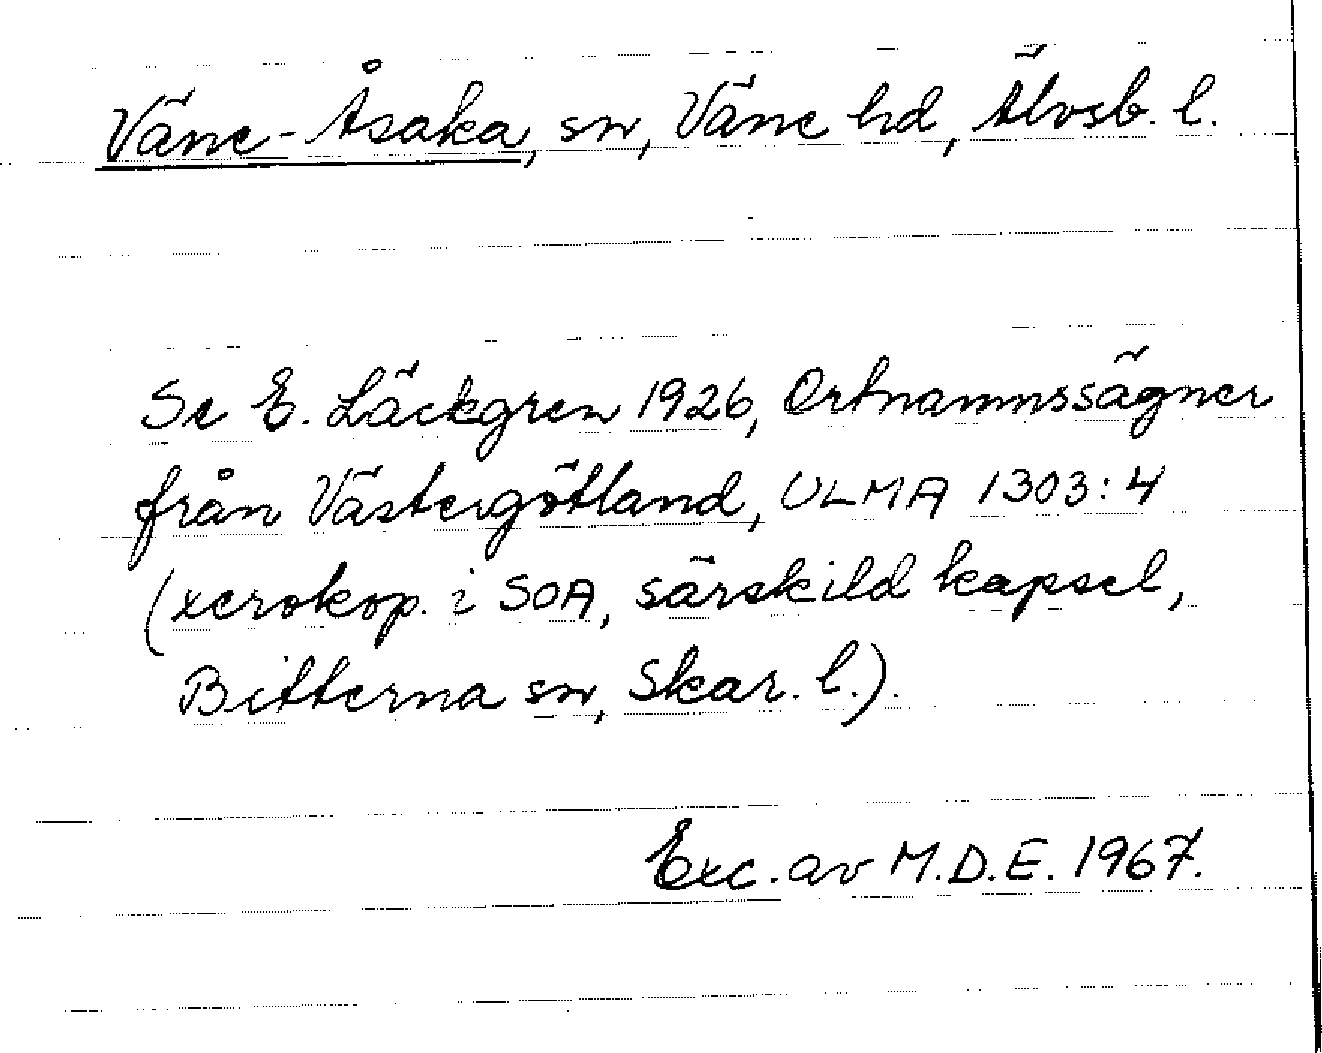 Väne-Åsaka, sn, Väne hd, Älvsb. l.
Se E. Läckgren 1926, Ortnamnssägner
från Västergötland, ULMA 1303:4
(xerokop. i SOA, särskild kapsel,
Bitterna sn, Skar. l.).
Exc. av M.D.E. 1967.